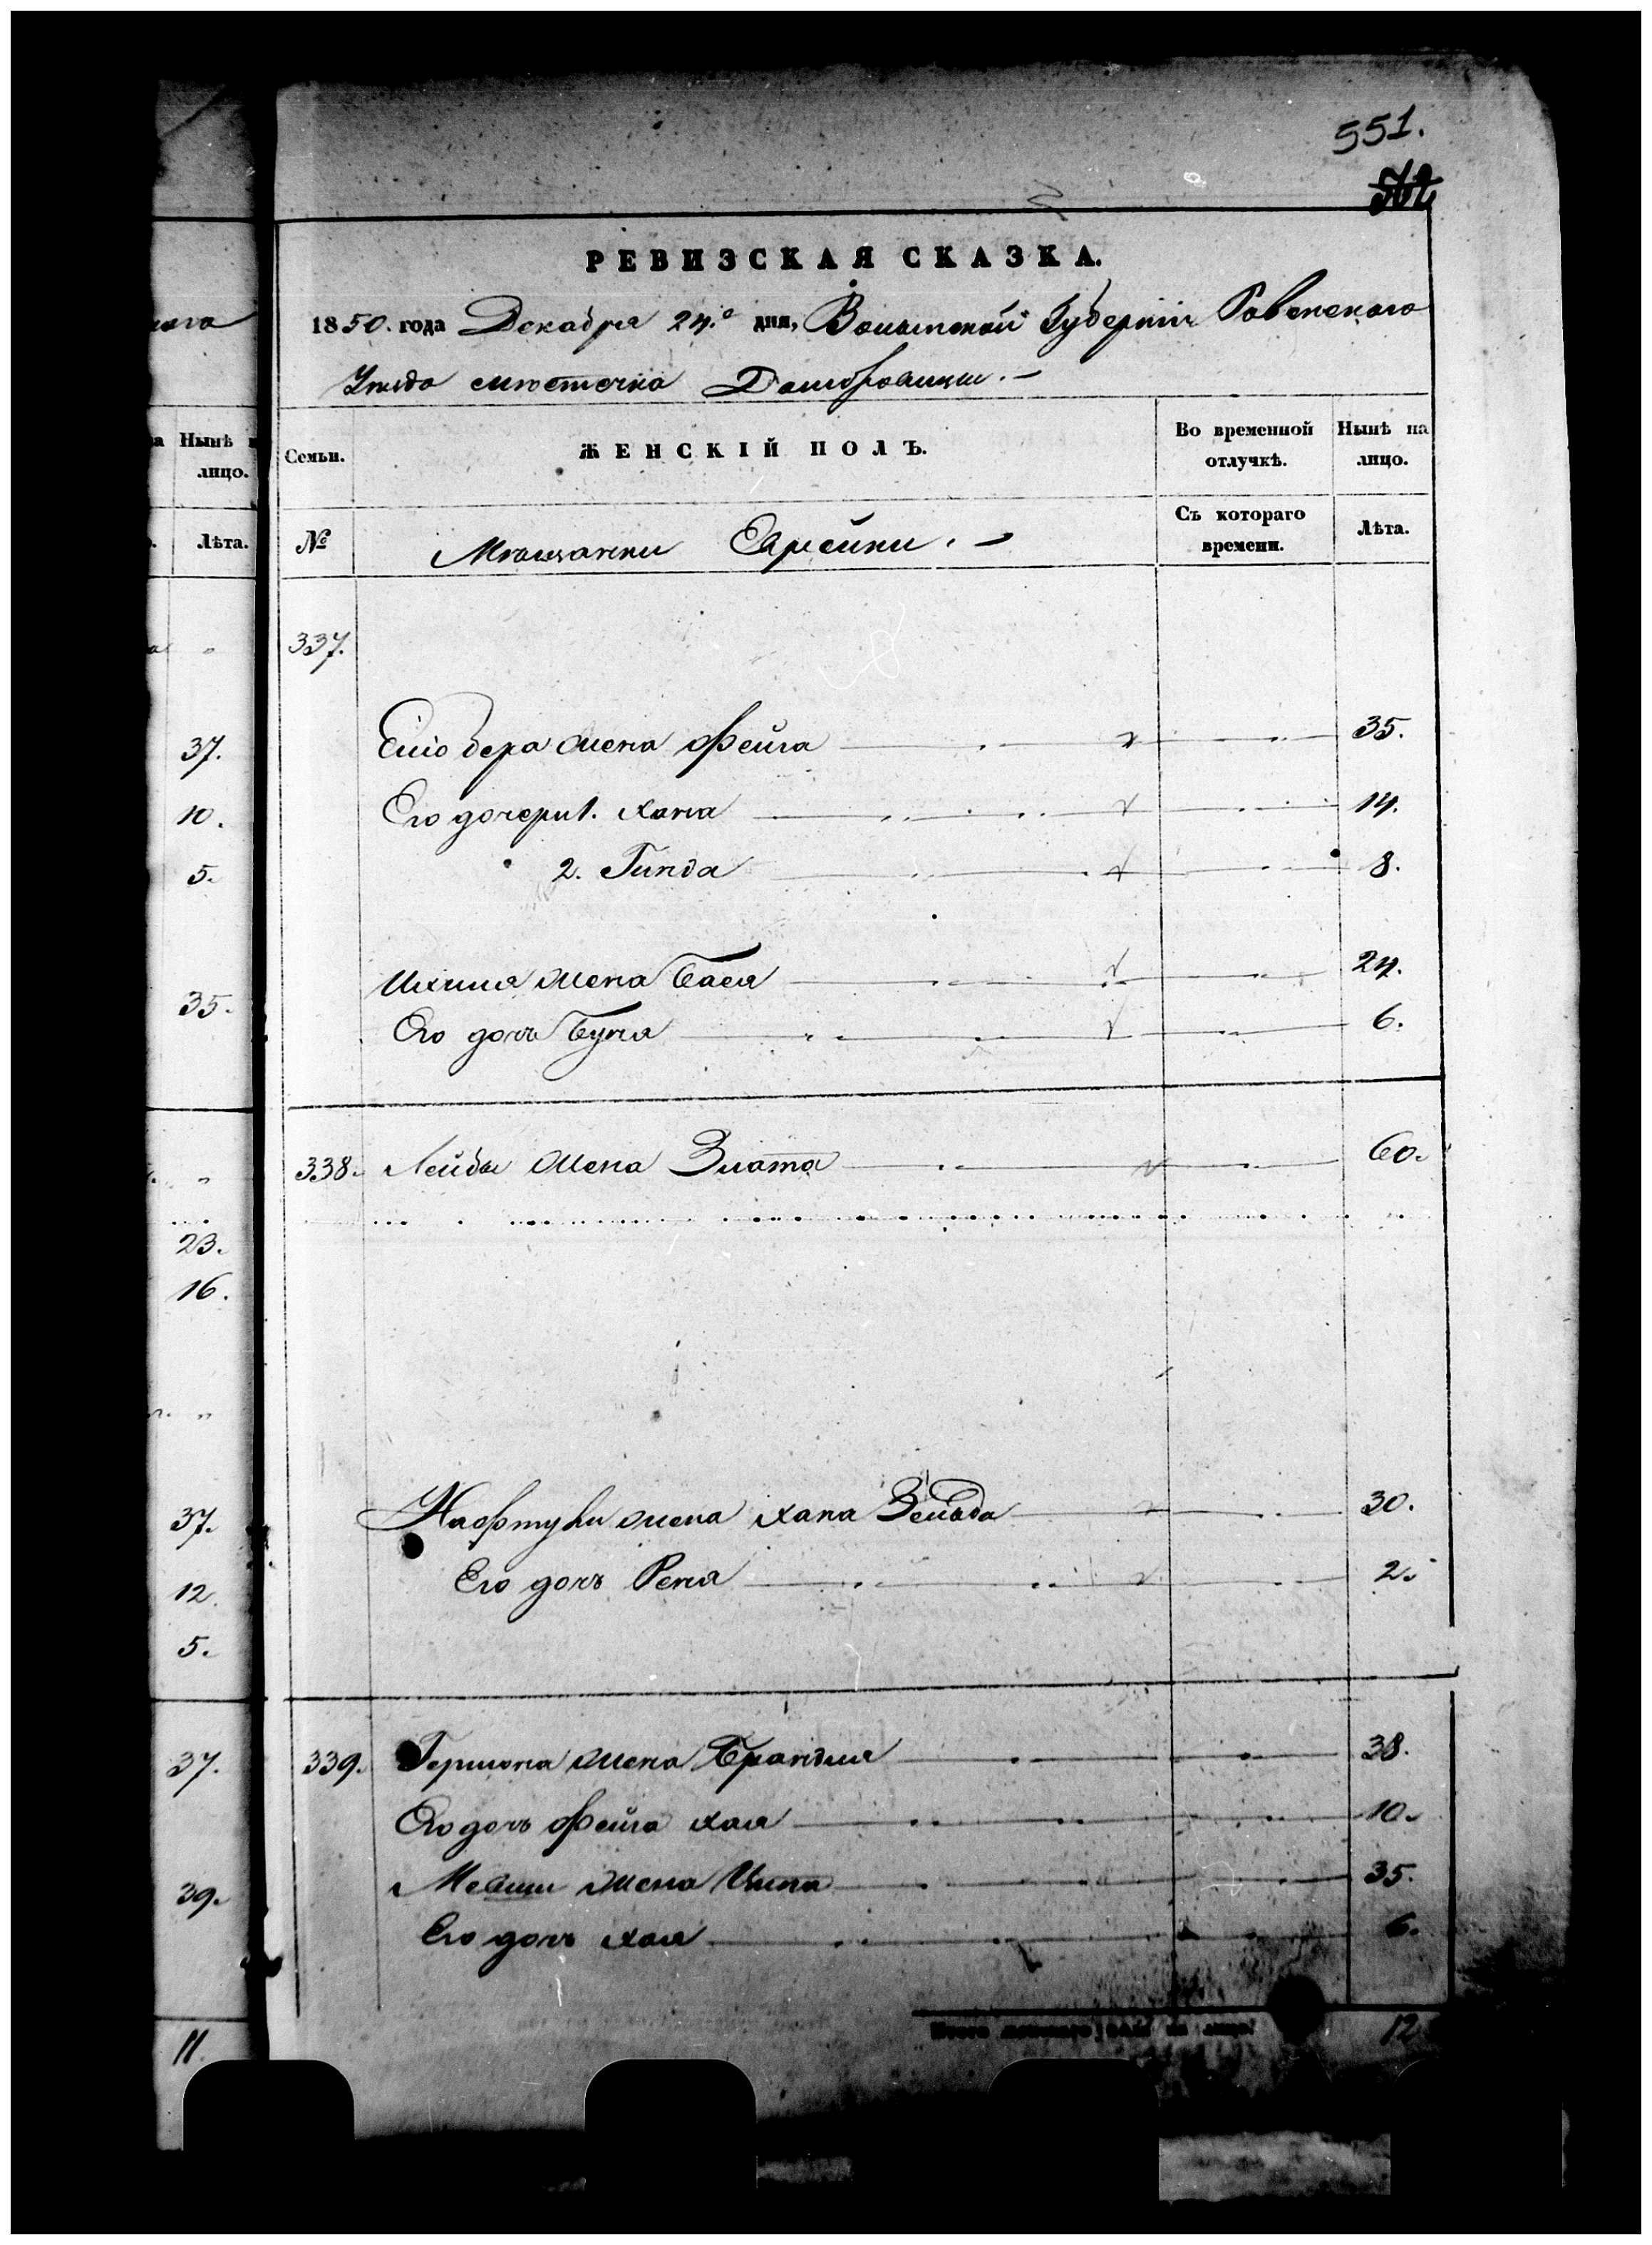 551.
РЕВИЗСКАЯ СКАЗКА.
1850. года Декабря 24.го дня, Волынской Губернiи Ровенского
Уѣзда мѣстечка Домбровицы. –
Семьи.
ЖЕНСКІЙ ПОЛЪ.
Во временной отлучкѣ.
Нынѣ на лицо.
№
Мѣщанки Еврейки. –
Съ котораго времени.
Лѣта.
337.
Бера жена Фейга 35.
Его дочери 1. Хана 14.
2. Гинда 8.
жена Бася 24.
Его дочь Буня 6.
338. Лейбы жена Злата 60.
Нафтули жена Хана Зельда 30.
Его дочь Рена 2.
339. Гершона жена Брандля 38.
Его дочь Фейга Хая 10.
жена Ципа 35.
Его дочь Хая 6.
12
Нынѣ
лицо.
Лѣта.
37.
10.
5.
35.
23.
16.
37.
12.
5.
37.
39.
11.